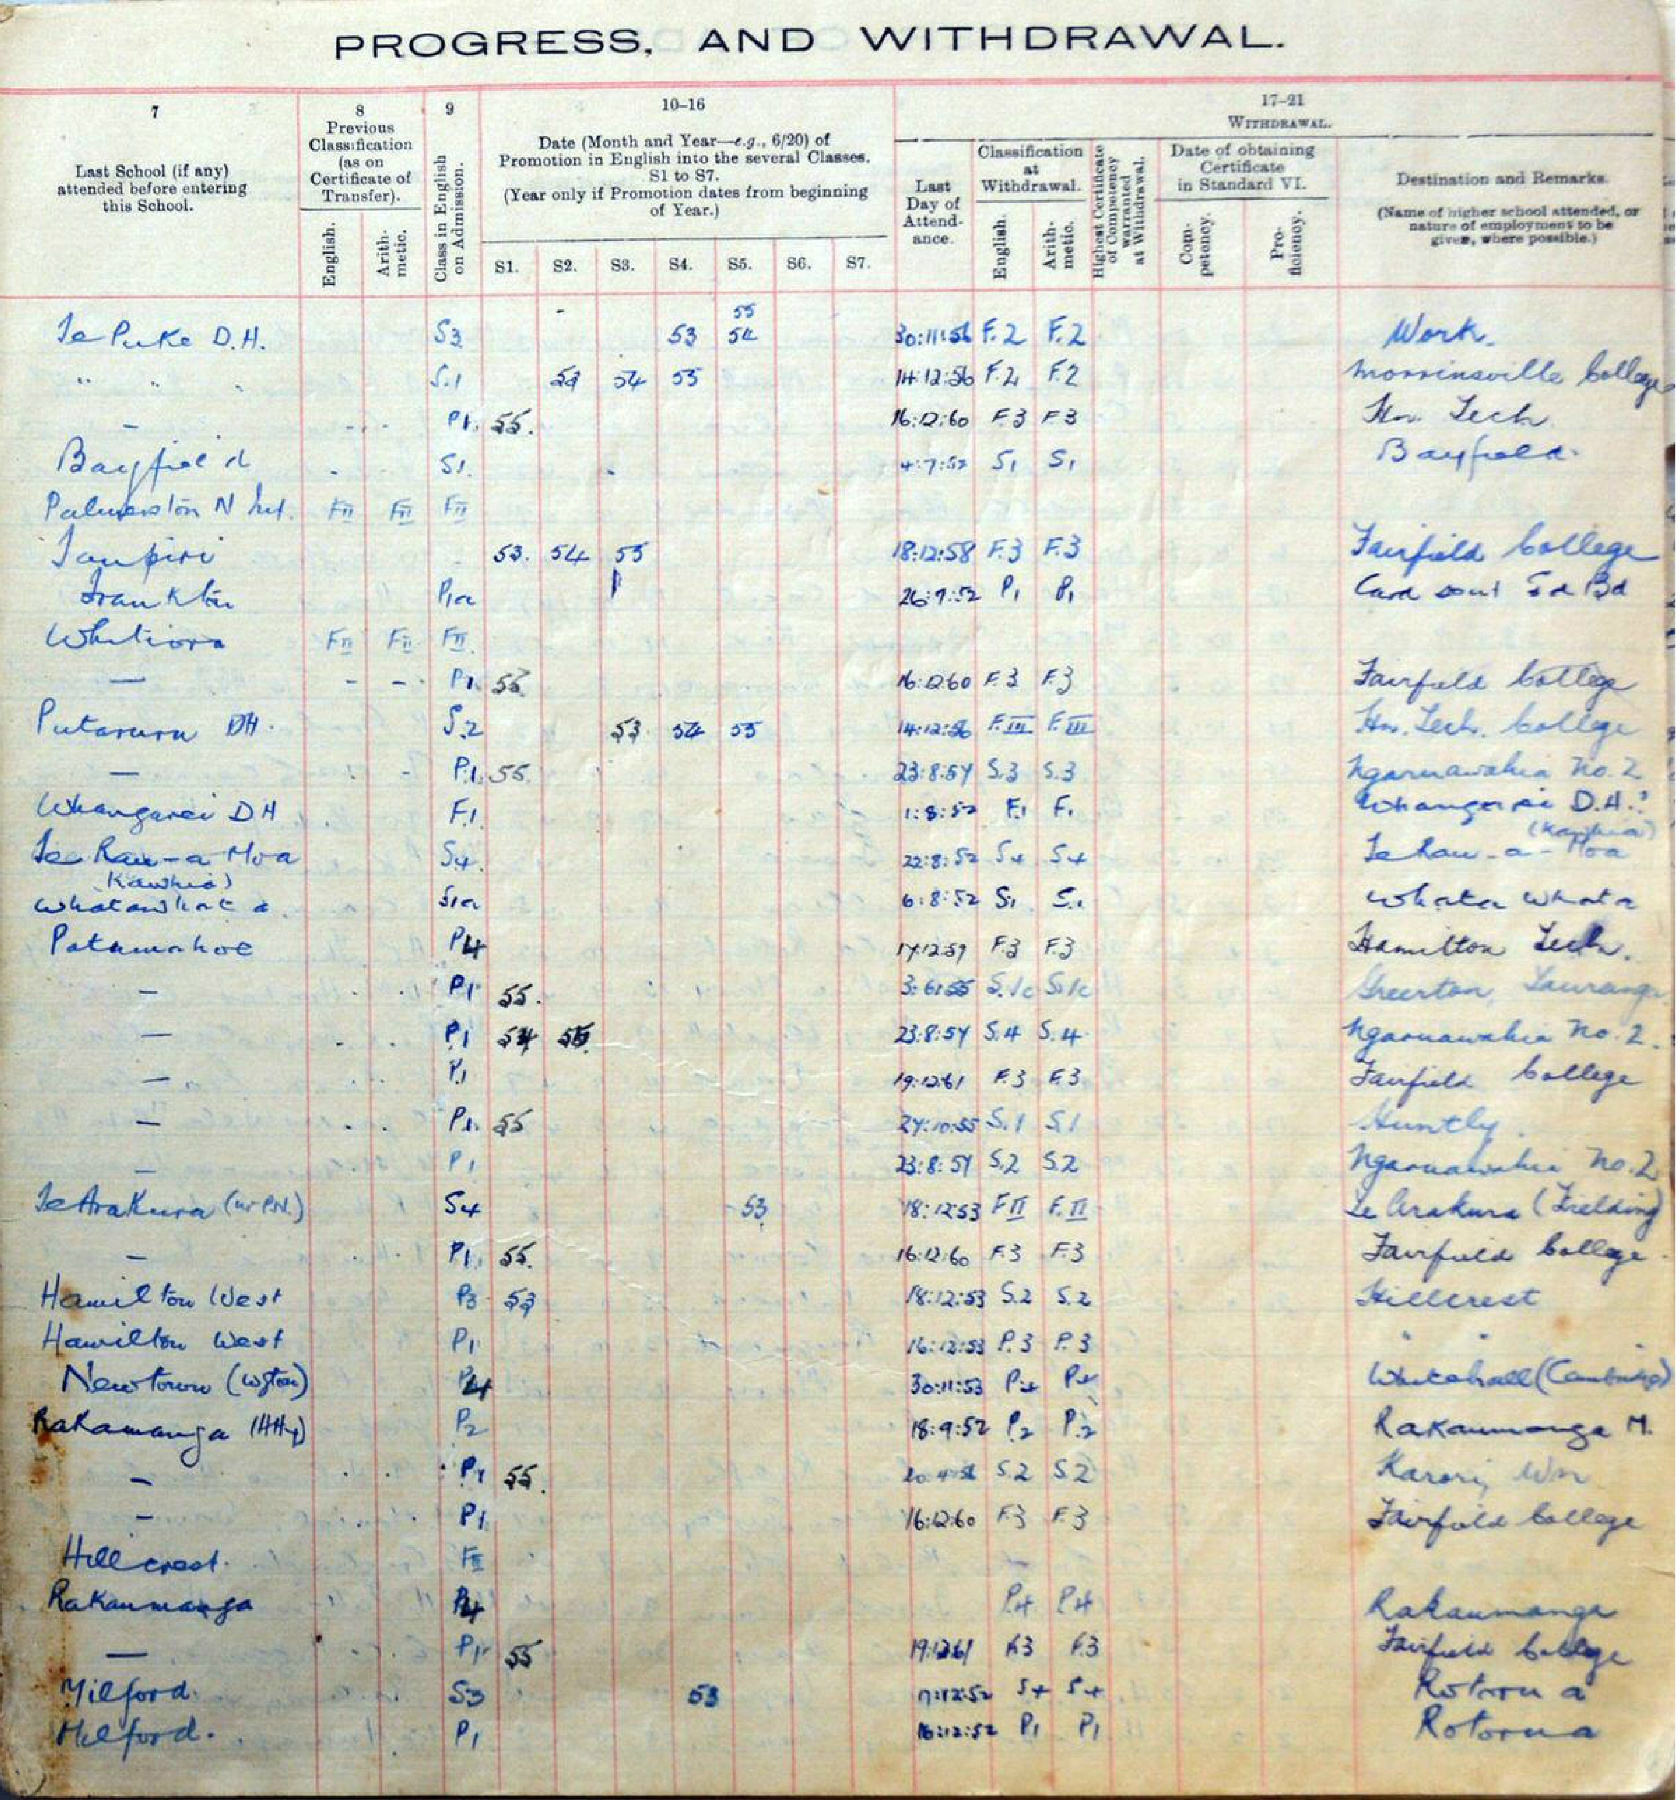 PROGRESS, AND WITHDRAWAL.
7 8 9 10–16 17–21
Last School (if any) attended before entering this School.
Previous Classification (as on Certificate of Transfer).
English. Arith-metic.
Class in English on Admission.
Date (Month and Year—e.g., 6/20) of Promotion in English into the several Classes. S1 to S7. (Year only if Promotion dates from beginning of Year.)
S1. S2. S3. S4. S5. S6. S7.
WITHDRAWAL.
Last Day of Attend-ance.
Classification at Withdrawal.
English. Arith-metic.
Highest Certificate of Competency warranted at Withdrawal.
Date of obtaining Certificate in Standard VI.
Com-petency. Pro-ficiency.
Destination and Remarks.
(Name of higher school attended, or nature of employment to be given, where possible.)
55
Te Puke D.H. S3 53 54 30:11:56 F.2 F.2 Work.
" " " S.1 53 54 55 14:12:56 F.2 F.2 Morrinsville College
— P1. 55. 16:12:60 F.3 F.3 Hn Tech
Bayfield S1. 4:7:52 S1 S1 Bayfield.
Palmerston N Int. FII FII FII
Taupiri 53. 54 55 18:12:58 F.3 F.3 Fairfield College
Frankton P1a 26:9:52 P1 P1 Card sent Ed Bd
Whitiora FII FII FII
— P1. 55 16:12:60 F.3 F.3 Fairfield College
Putaruru DH. S.2 53 54 55 14:12:56 F.III F.III Hn. Tech. College
— P.1. 55. 23:8:57 S.3 S.3 Ngaruawahia No. 2
Whangarei DH F.1 1:8:52 F.1 F.1 Whangarei D.H.
(Kawhia)
Te Rau-a-Moa S4. 22:8:52 S4 S4 Te Rau-a-Moa
(Kawhia)
Whatawhata S1a 6:8:52 S1 S.1 Whata Whata
Patumahoe P4 17:12:59 F.3 F.3 Hamilton Tech.
— P1 55. 3:6:55 S.1c S.1c Greerton, Tauranga
— P1 54 55 23:8:57 S.4 S.4 Ngaruawahia No. 2.
— P.1 19:12:61 F.3 F.3 Fairfield College
— P1. 55 27:10:55 S.1 S1 Huntly.
— P1 23:8:57 S.2 S.2 Ngaruawahia No. 2
Te Arakura (nr P.N.) S4 53 18:12:53 FII F.II Te Arakura (Fielding)
— P1. 55. 16:12:60 F.3 F.3 Fairfield College.
Hamilton West P3 53 18:12:53 S.2 S.2 Hillcrest
Hamilton West P1 16:12:53 P.3 P.3 " "
Newtown (Wgton) P4 30:11:53 P4 P4 Whitehall (Cambridge)
Rakamanga (HHy) P2 18:9:52 P2 P.2 Rakaumanga M.
— P1 55. S.2 S2 Karori, Wn
— P1 16:12:60 F.3 F.3 Fairfield College
Hillcrest. FII
Rakaumanga P4 P4 P4 Rakaumanga
— P1. 55 19:12:61 F.3 F.3 Fairfield College
Milford. S3 53 S4 S4 Rotorua
Milford. P1 16:12:52 P1 P1 Rotorua